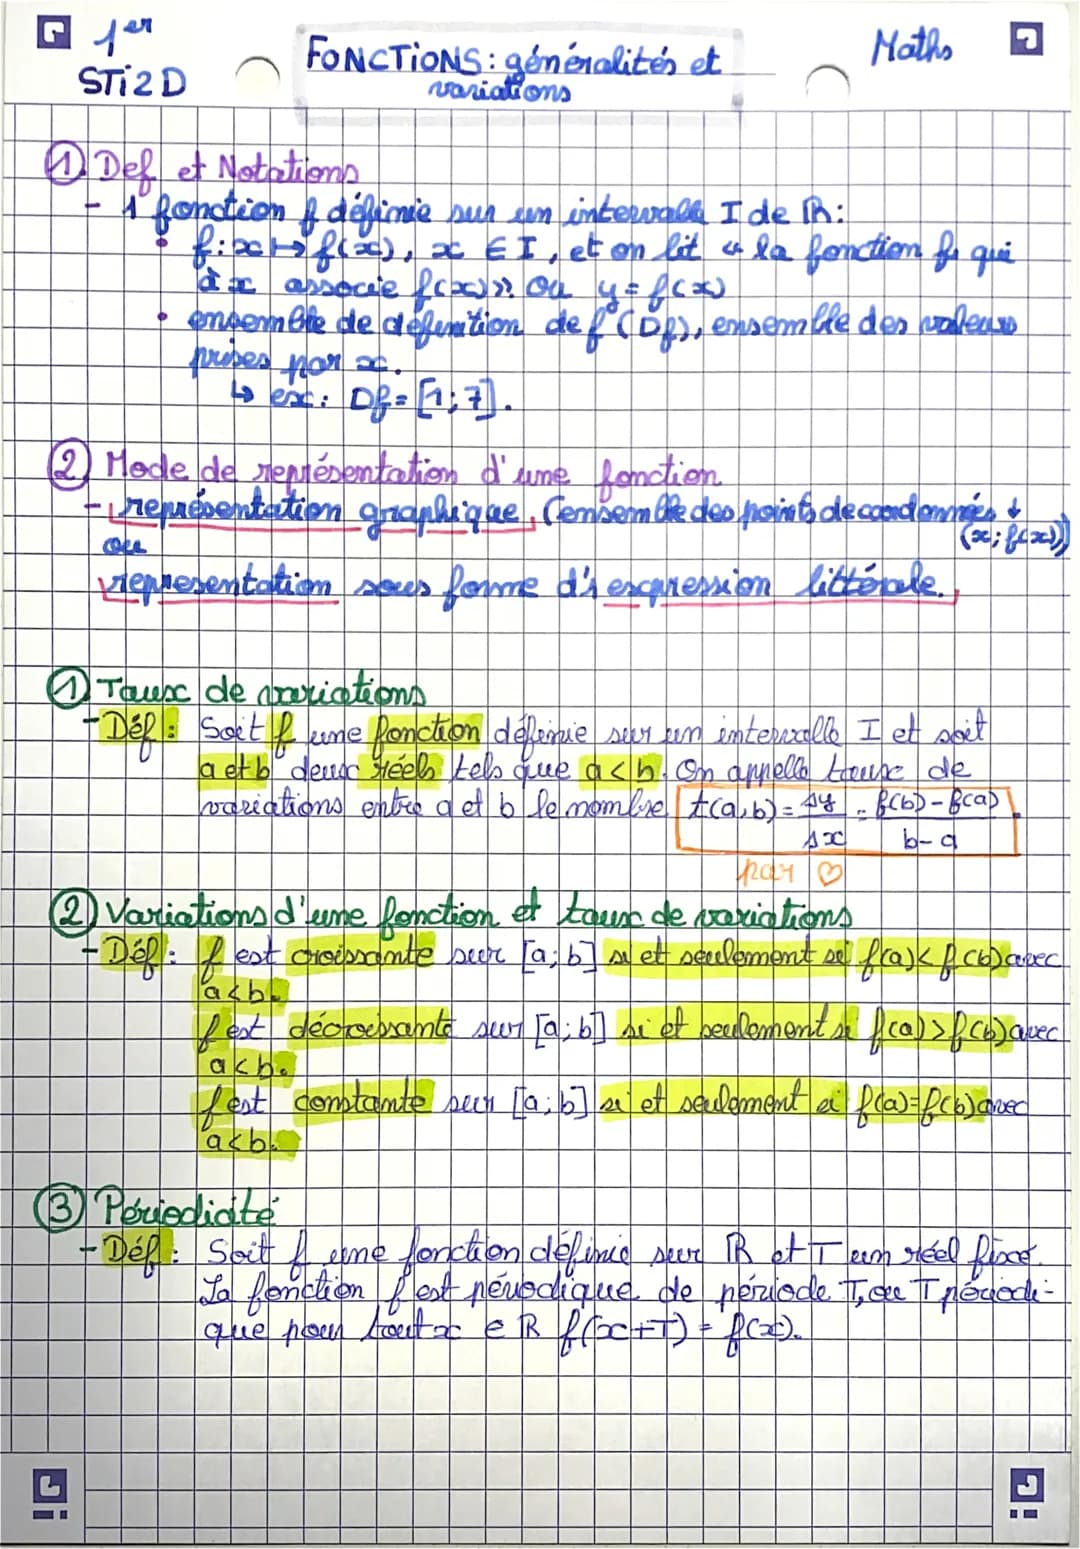 1er
STi2D
FONCTIONS : généralités et
variations
Maths
① Def et Notations
- 1 fonction f définie sur un intervalle I de ℝ:
• f: x ↦ f(x), x ∈ I, et on lit « la fonction f qui
à x associe f(x) » ou y = f(x)
• ensemble de définition de f (Df), ensemble des valeurs
prises par x.
↳ ex: Df = [1; 7].
② Mode de représentation d'une fonction
- représentation graphique, (ensemble des points de coordonnées ↓
(x; f(x)))
ou
representation sous forme d's expression littérale.
① Taux de variations
- Déf : Soit f une fonction définie sur un intervalle I et soit
a et b deux réels tels que a < b. On appelle taux de
variations entre a et b le nombre t(a,b) = Δy/Δx = f(b) - f(a)/b - a.
par ♡
② Variations d'une fonction et taux de variations
- Déf : f est croissante sur [a; b] si et seulement si f(a) < f(b) avec
a < b.
f est décroissante sur [a; b] si et seulement si f(a) > f(b) avec
a < b.
f est constante sur [a; b] si et seulement si f(a) = f(b) avec
a < b.
③ Périodicité
- Déf : Soit f une fonction définie sur ℝ et T un réel fixé.
La fonction f est périodique de période T, ou T périodi-
que pour tout x ∈ ℝ f(x+T) = f(x).